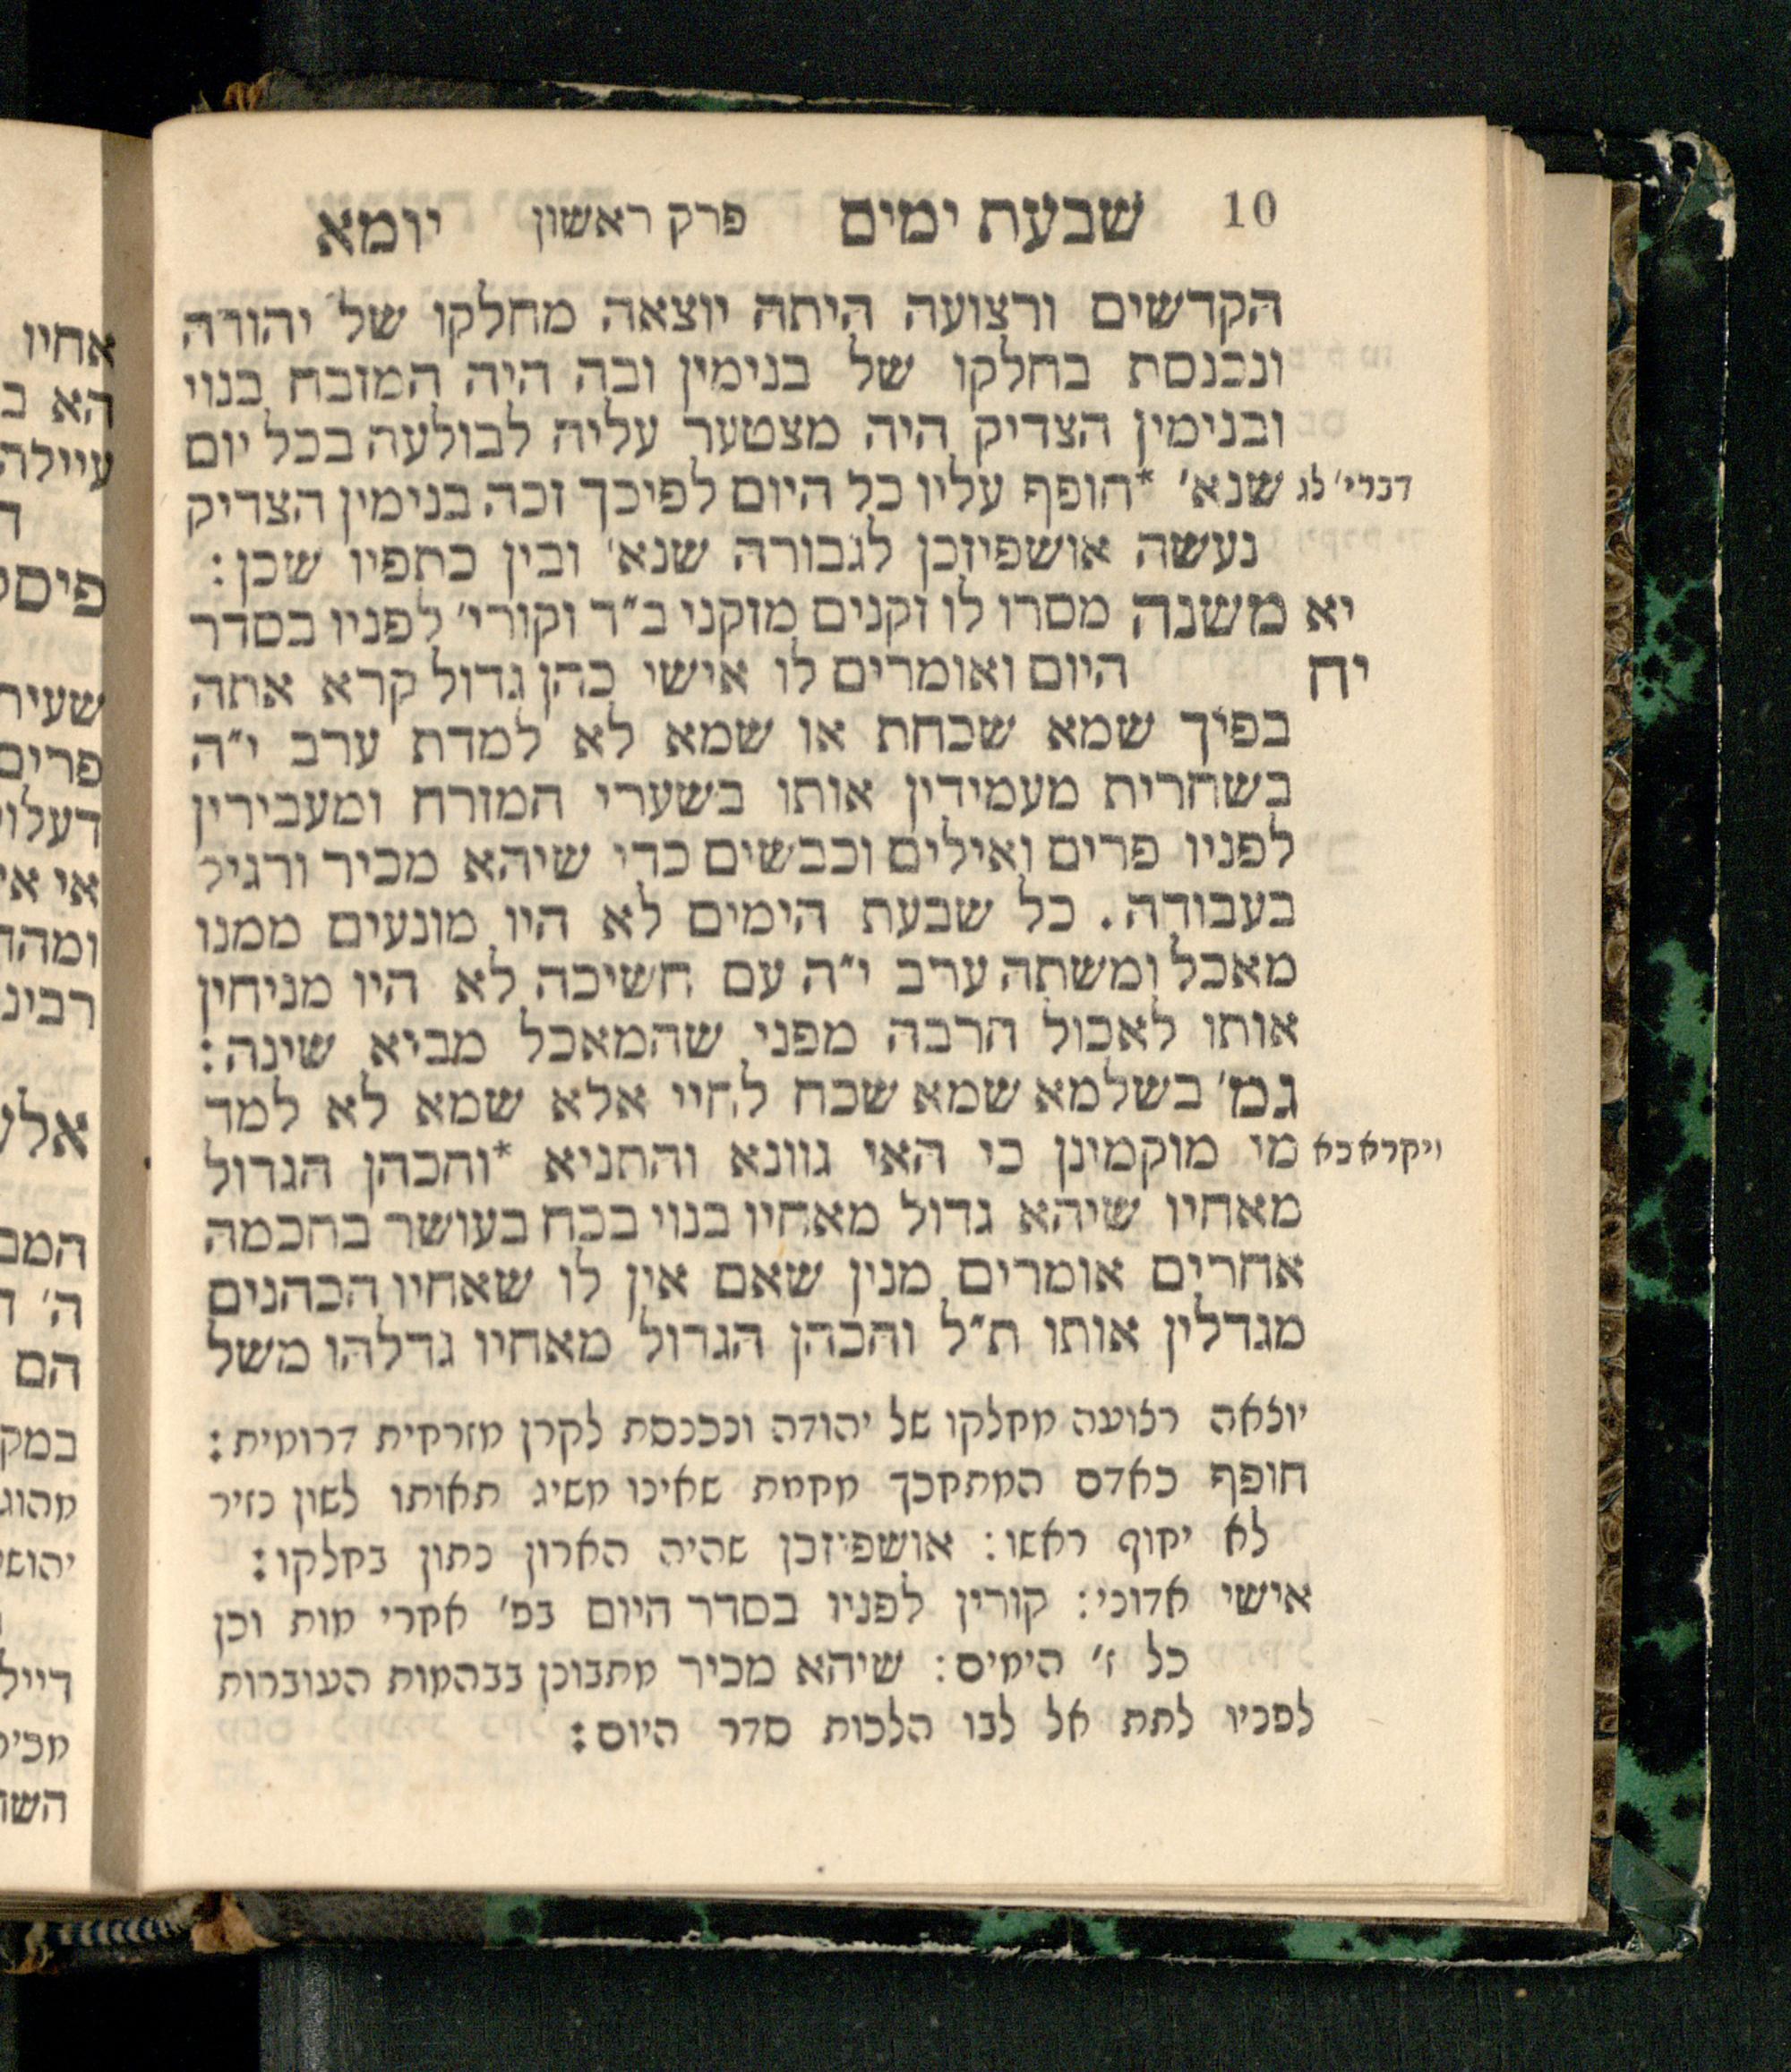 10 שבעת ימים פרק ראשון יומא
הקדשים ורצועה היתה יוצאה מחלקו של יהודה
ונכנסת בחלקו של בנימין ובה היה המזבח בנוי
ובנימין הצדיק היה מצטער עליה לבולעה בכל יום
דברי׳ לג שנא׳ *חופף עליו כל היום לפיכך זכה בנימין הצדיק
נעשה אושפיזכן לגבורה שנא׳ ובין כתפיו שכן:
יא משנה מסרו לו זקנים מזקני ב״ד וקורי׳ לפניו בסדר
יח היום ואומרים לו אישי כהן גדול קרא אתה
בפיך שמא שכחת או שמא לא למדת ערב י״ה
בשחרית מעמידין אותו בשערי המזרח ומעבירין
לפניו פרים ואילים וכבשים כדי שיהא מכיר ורגיל
בעבודה. כל שבעת הימים לא היו מונעים ממנו
מאכל ומשתה ערב י״ה עם חשיכה לא היו מניחין
אותו לאכול הרבה מפני שהמאכל מביא שינה:
גמ׳ בשלמא שמא שכח לחיי אלא שמא לא למד
ויקרא כא מי מוקמינן כי האי גוונא והתניא *והכהן הגדול
מאחיו שיהא גדול מאחיו בנוי בכח בעושר בחכמה
אחרים אומרים מנין שאם אין לו שאחיו הכהנים
מגדלין אותו ת״ל והכהן הגדול מאחיו גדלהו משל
יוצאה רצועה מחלקו של יהודה ונכנסת לקרן מזרחית דרומית:
חופף כאדם המתחכך מחמת שאינו משיג תאותו לשון נזיר
לא יחוף ראשו: אושפיזכן שהיה הארון נתון בחלקו:
אישי אדוני: קורין לפניו בסדר היום בפ׳ אחרי מות וכן
כל ז׳ הימים: שיהא מכיר מתבונן בבהמות העוברות
לפניו לתת אל לבו הלכות סדר היום: